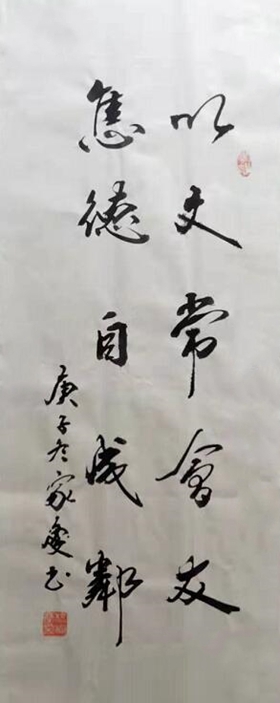 以文常會友
惟德自成鄰
庚子冬家慶书